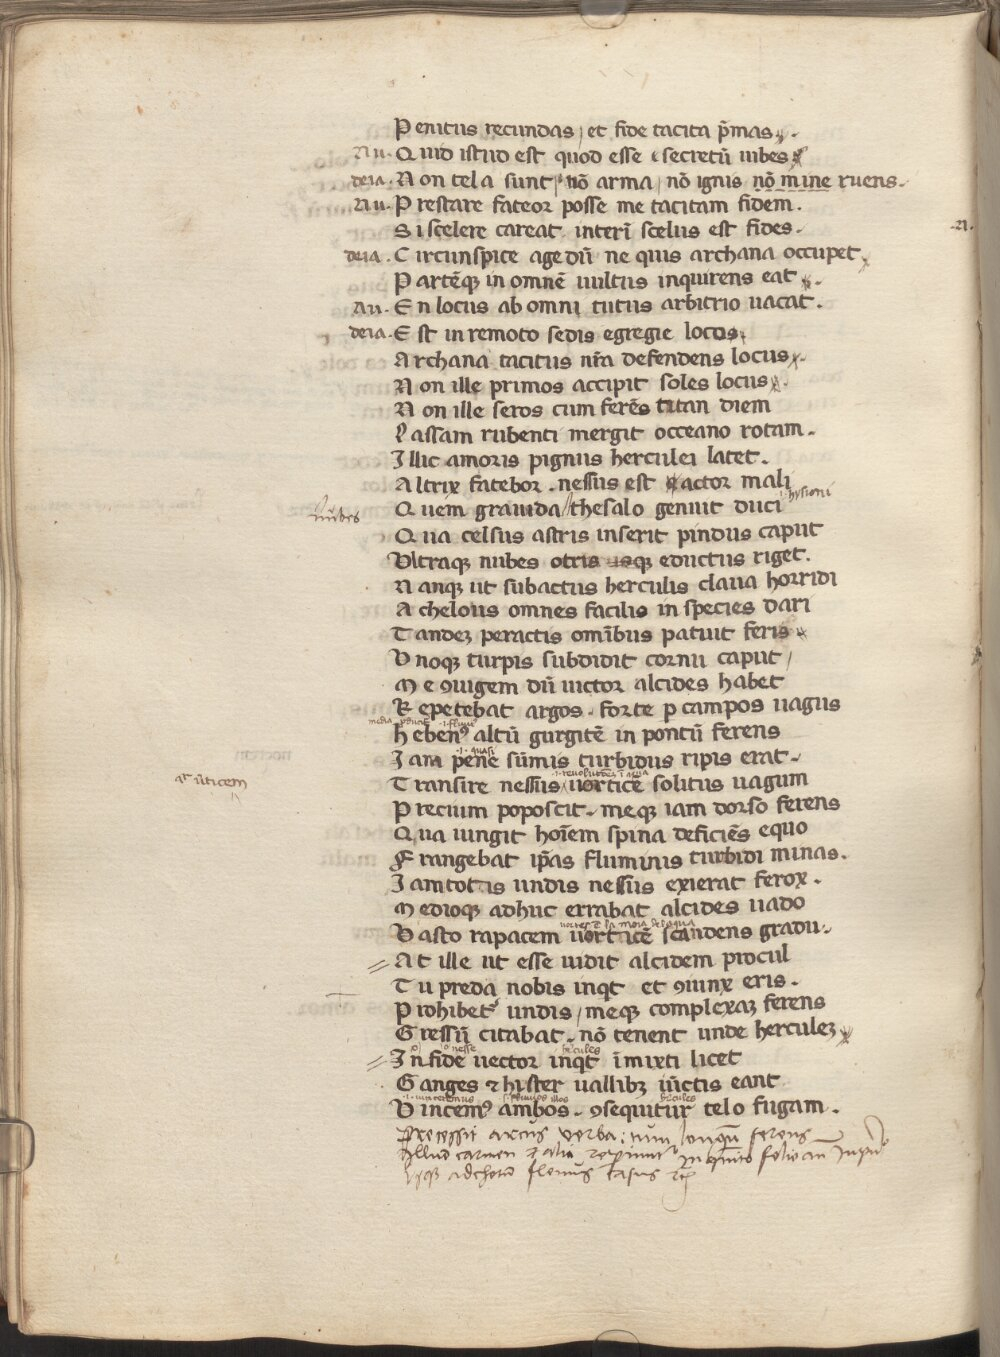 Penitus recundas / et fide tacita p̄mas.
Nu. Quid istud est quod esse secretū iubes
deia. Non tela sunt / nō arma / nō ignis nō mine ruens.
Nu. Prestare fateor posse me tacitam fidem.
Si scelere careat interī scelus est fides.
deia. Circunspice age dū ne quis archana occupet
Partēqꝫ in omnē uultus inquirens eat
Nu. En locus ab omni tutus arbitrio uacat.
deia. Est in remoto sedis egregie locus
Archana tacitus nr̄a defendens locus
Non ille primos accipit soles locus
Non ille seros cum ferēs titan diem
Passam rubenti mergit occeano rotam.
Illic amoris pignus herculei latet.
Altrix fatebor. nessus est actor mali
hysioni
nubes
Quem grauida / thesalo genuit duci
Qua celsus astris inserit pindus caput
Vltraqꝫ nubes otris usqꝫ eductus riget.
Nanqꝫ ut subactus herculis claua horridi
Achelous omnes facilis in species dari
Tandeꝫ peractis omībus patuit feris
Vnoqꝫ turpis subdidit cornu caput /
Me ꝯiugem dū uictor alcides habet
Repetebat argos. forte ꝑ campos uagus
Hebenꝰ altū gurgitē in pontū ferens
.i. quasi
Iam pene sūmis turbidus ripis erat.
Transire nessus uorticē solitus uagum
Precium poposcit. meqꝫ iam dorso ferens
Qua iungit hoīem spina deficiēs equo
Frangebat ip̄as fluminis turbidi minas.
Iam totis undis nessus exierat ferox.
Medioqꝫ adhuc errabat alcides uado
Vasto rapacem uorticē scandens gradu.
At ille ut esse uidit alcidem procul
Tu preda nobis inqt et ꝯiunx eris.
Prohibetꝰ undis / meqꝫ complexaꝫ ferens
Gressū citabat. nō tenent unde herculeꝫ
nesse hercules
Infide uector inqt īmixti licet
Ganges & hister uallibꝫ iūctis eant
hercules
Vincemꝰ ambos. ꝯsequitur telo fugam.
Precessit arcus verba: tum longū ferens